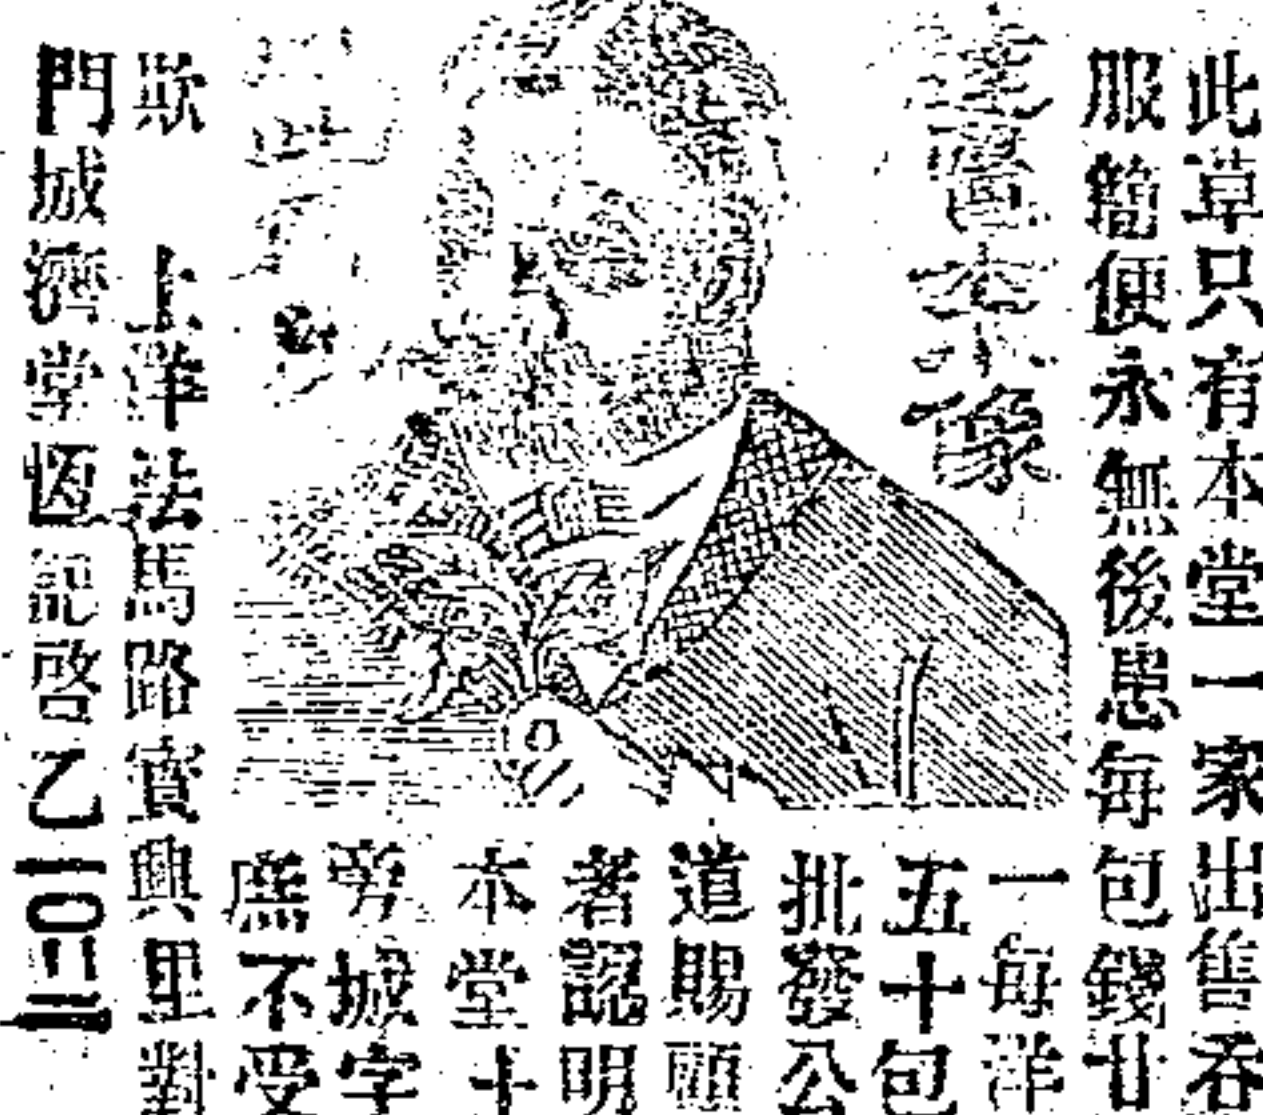 此草只有本堂一家出售吞
服簡便永無後患每包錢廿
醫士小像
一每洋
五十包
批發公
道賜顧
者認明
本堂十
旁城字
庶不受
欺 上洋法馬路寶興里對
門城濟堂恆記啓 乙一〇二二